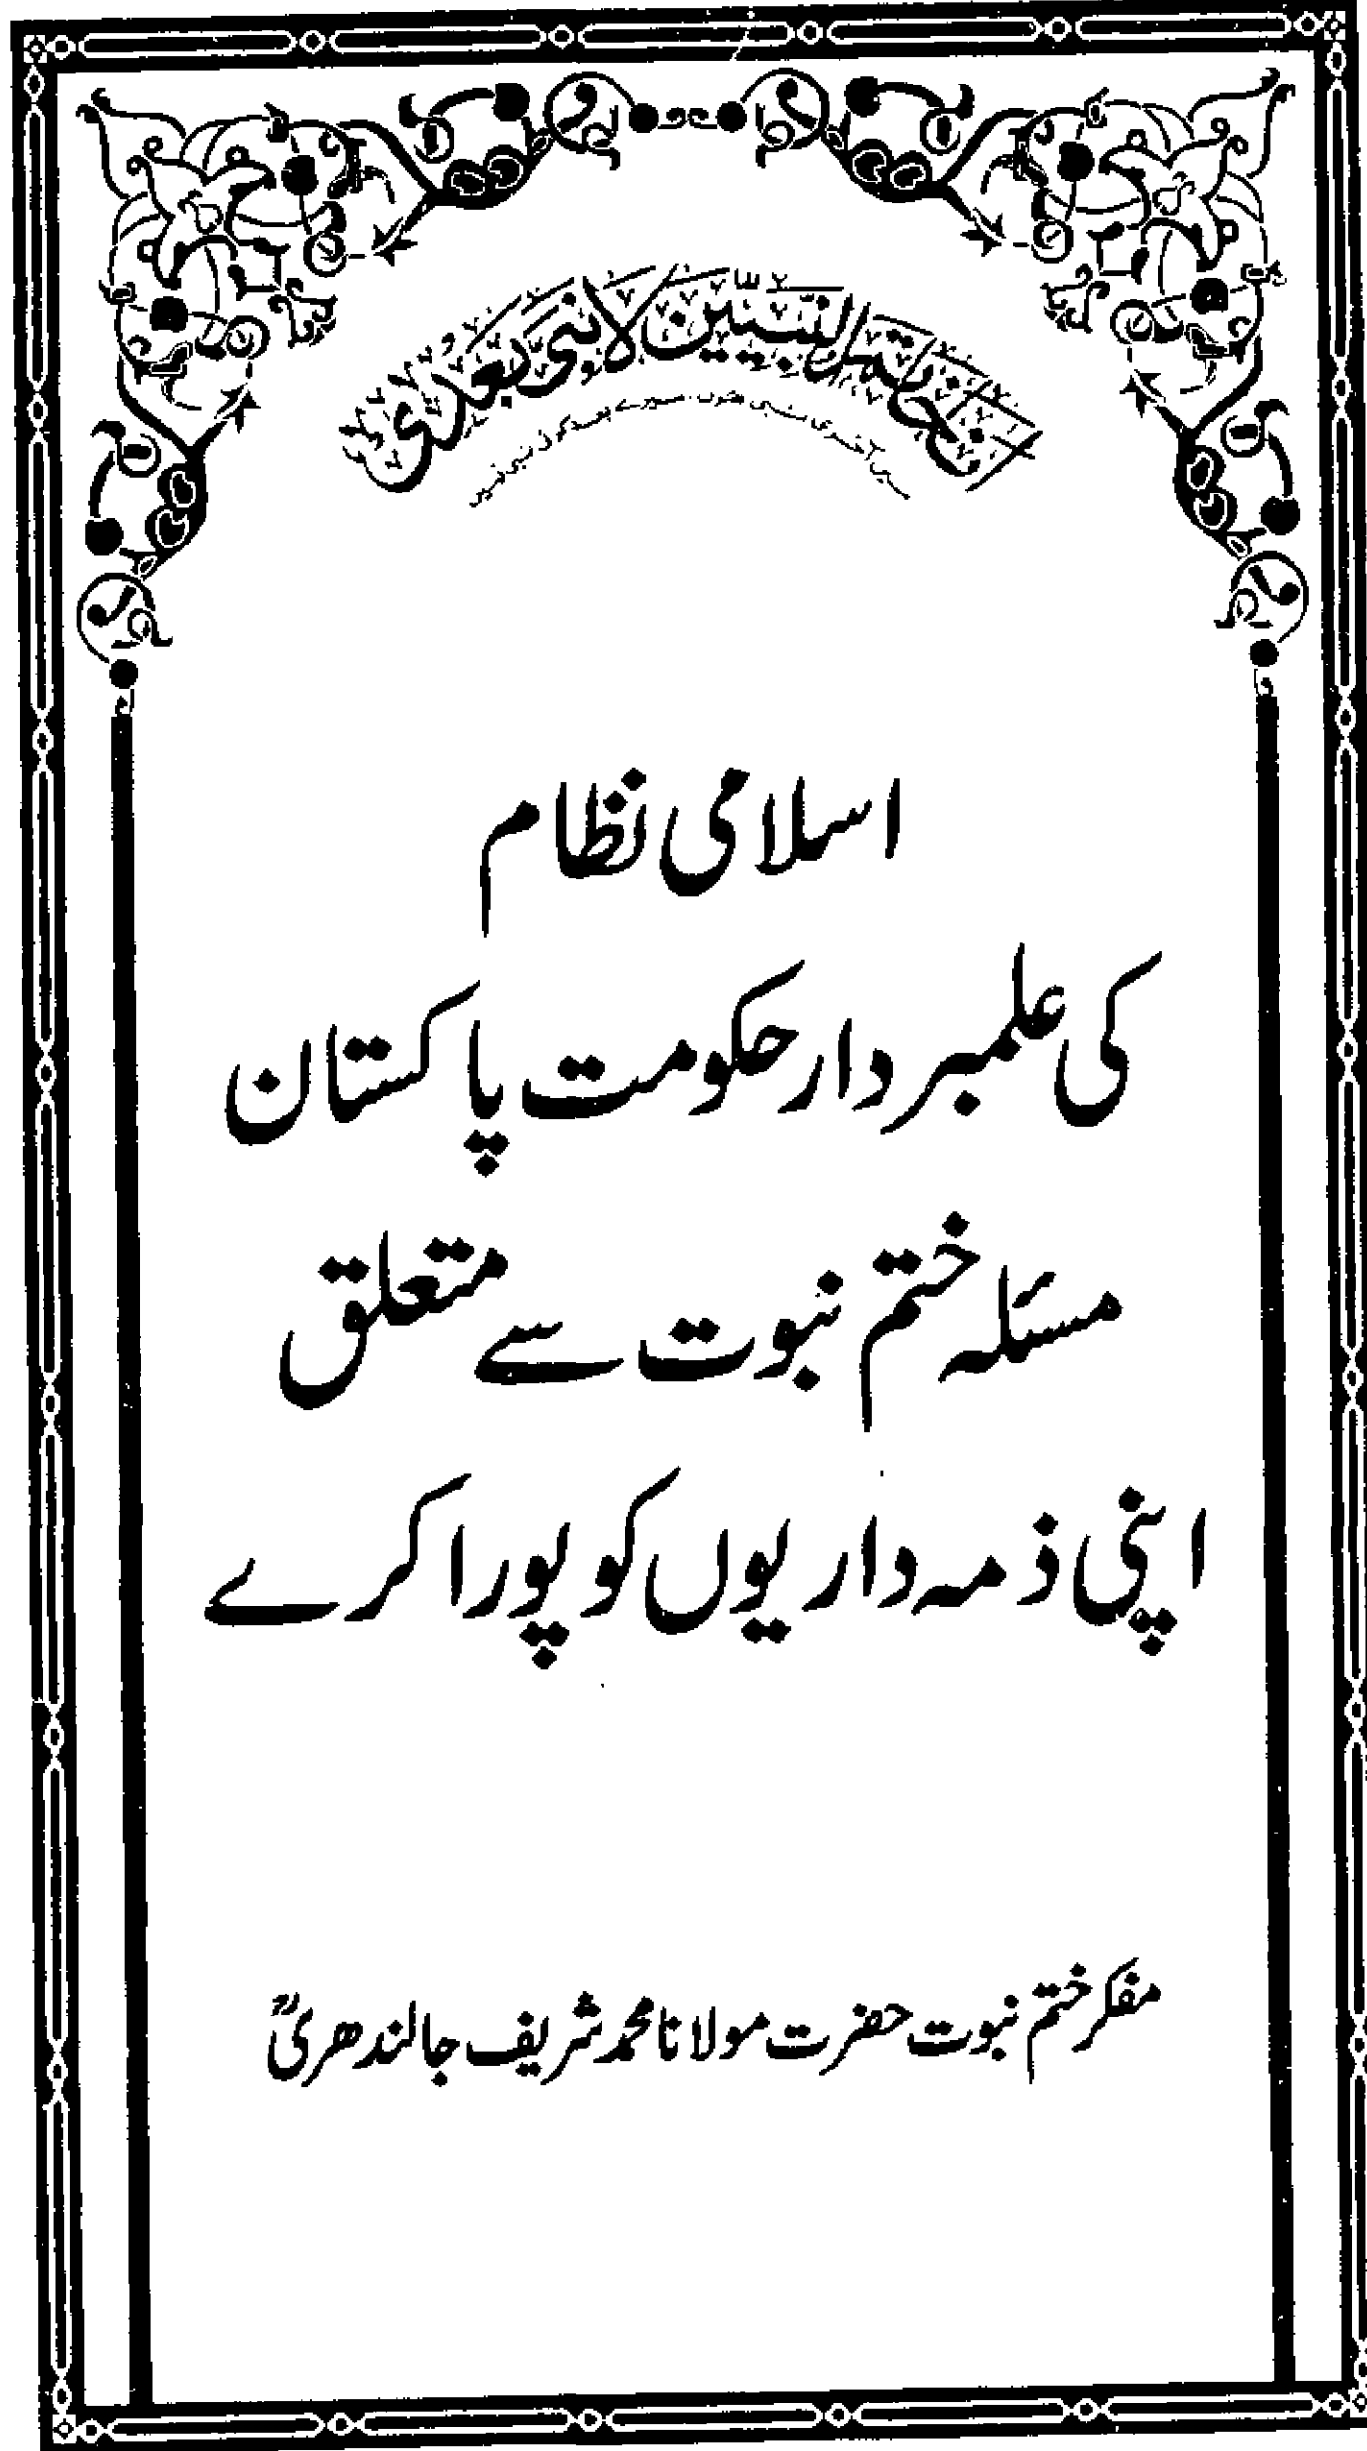 انا خاتم النبیین لا نبی بعدی
میں آخری نبی ہوں میرے بعد کوئی نبی نہیں
اسلامی نظام
کی علمبردار حکومت پاکستان
مسئلہ ختم نبوت سے متعلق
اپنی ذمہ داریوں کو پورا کرے
مفکر ختم نبوت حضرت مولانا محمد شریف جالندھریؒ